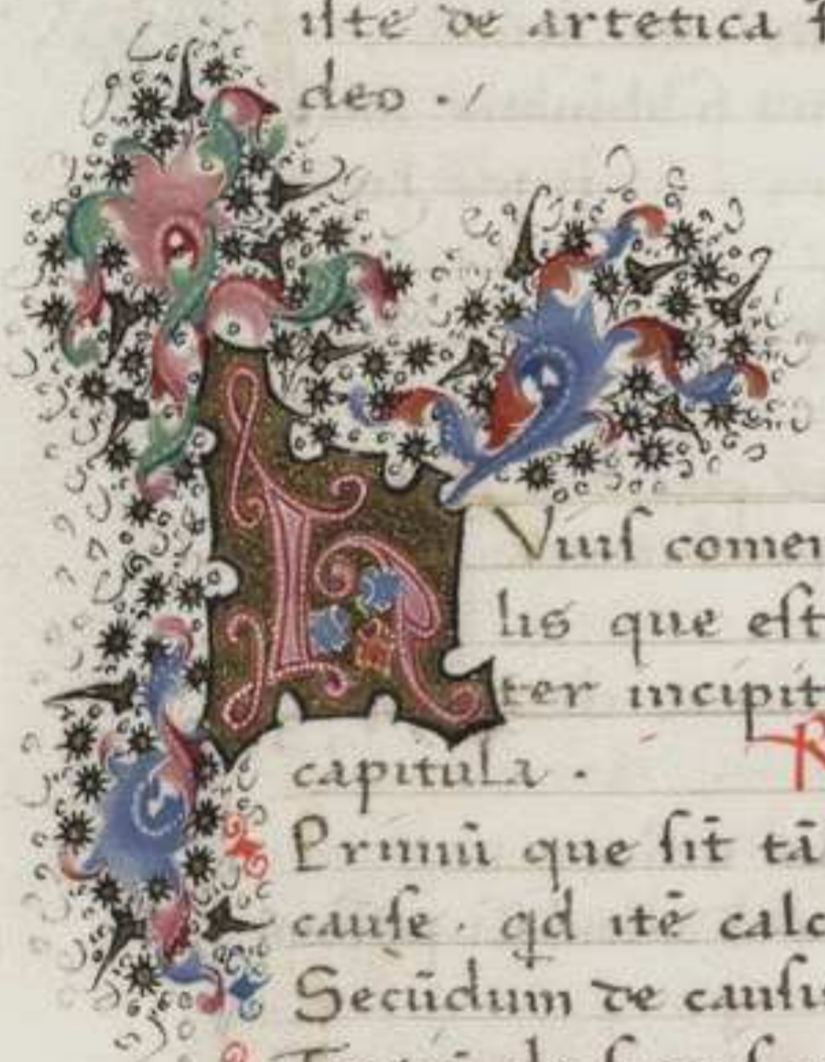 iste de artetica
deo ·/
hVius comen
lis que est
ter incipit
capitula .
Primū que sit tā
cause · qd itē calc
Secūdum de causis